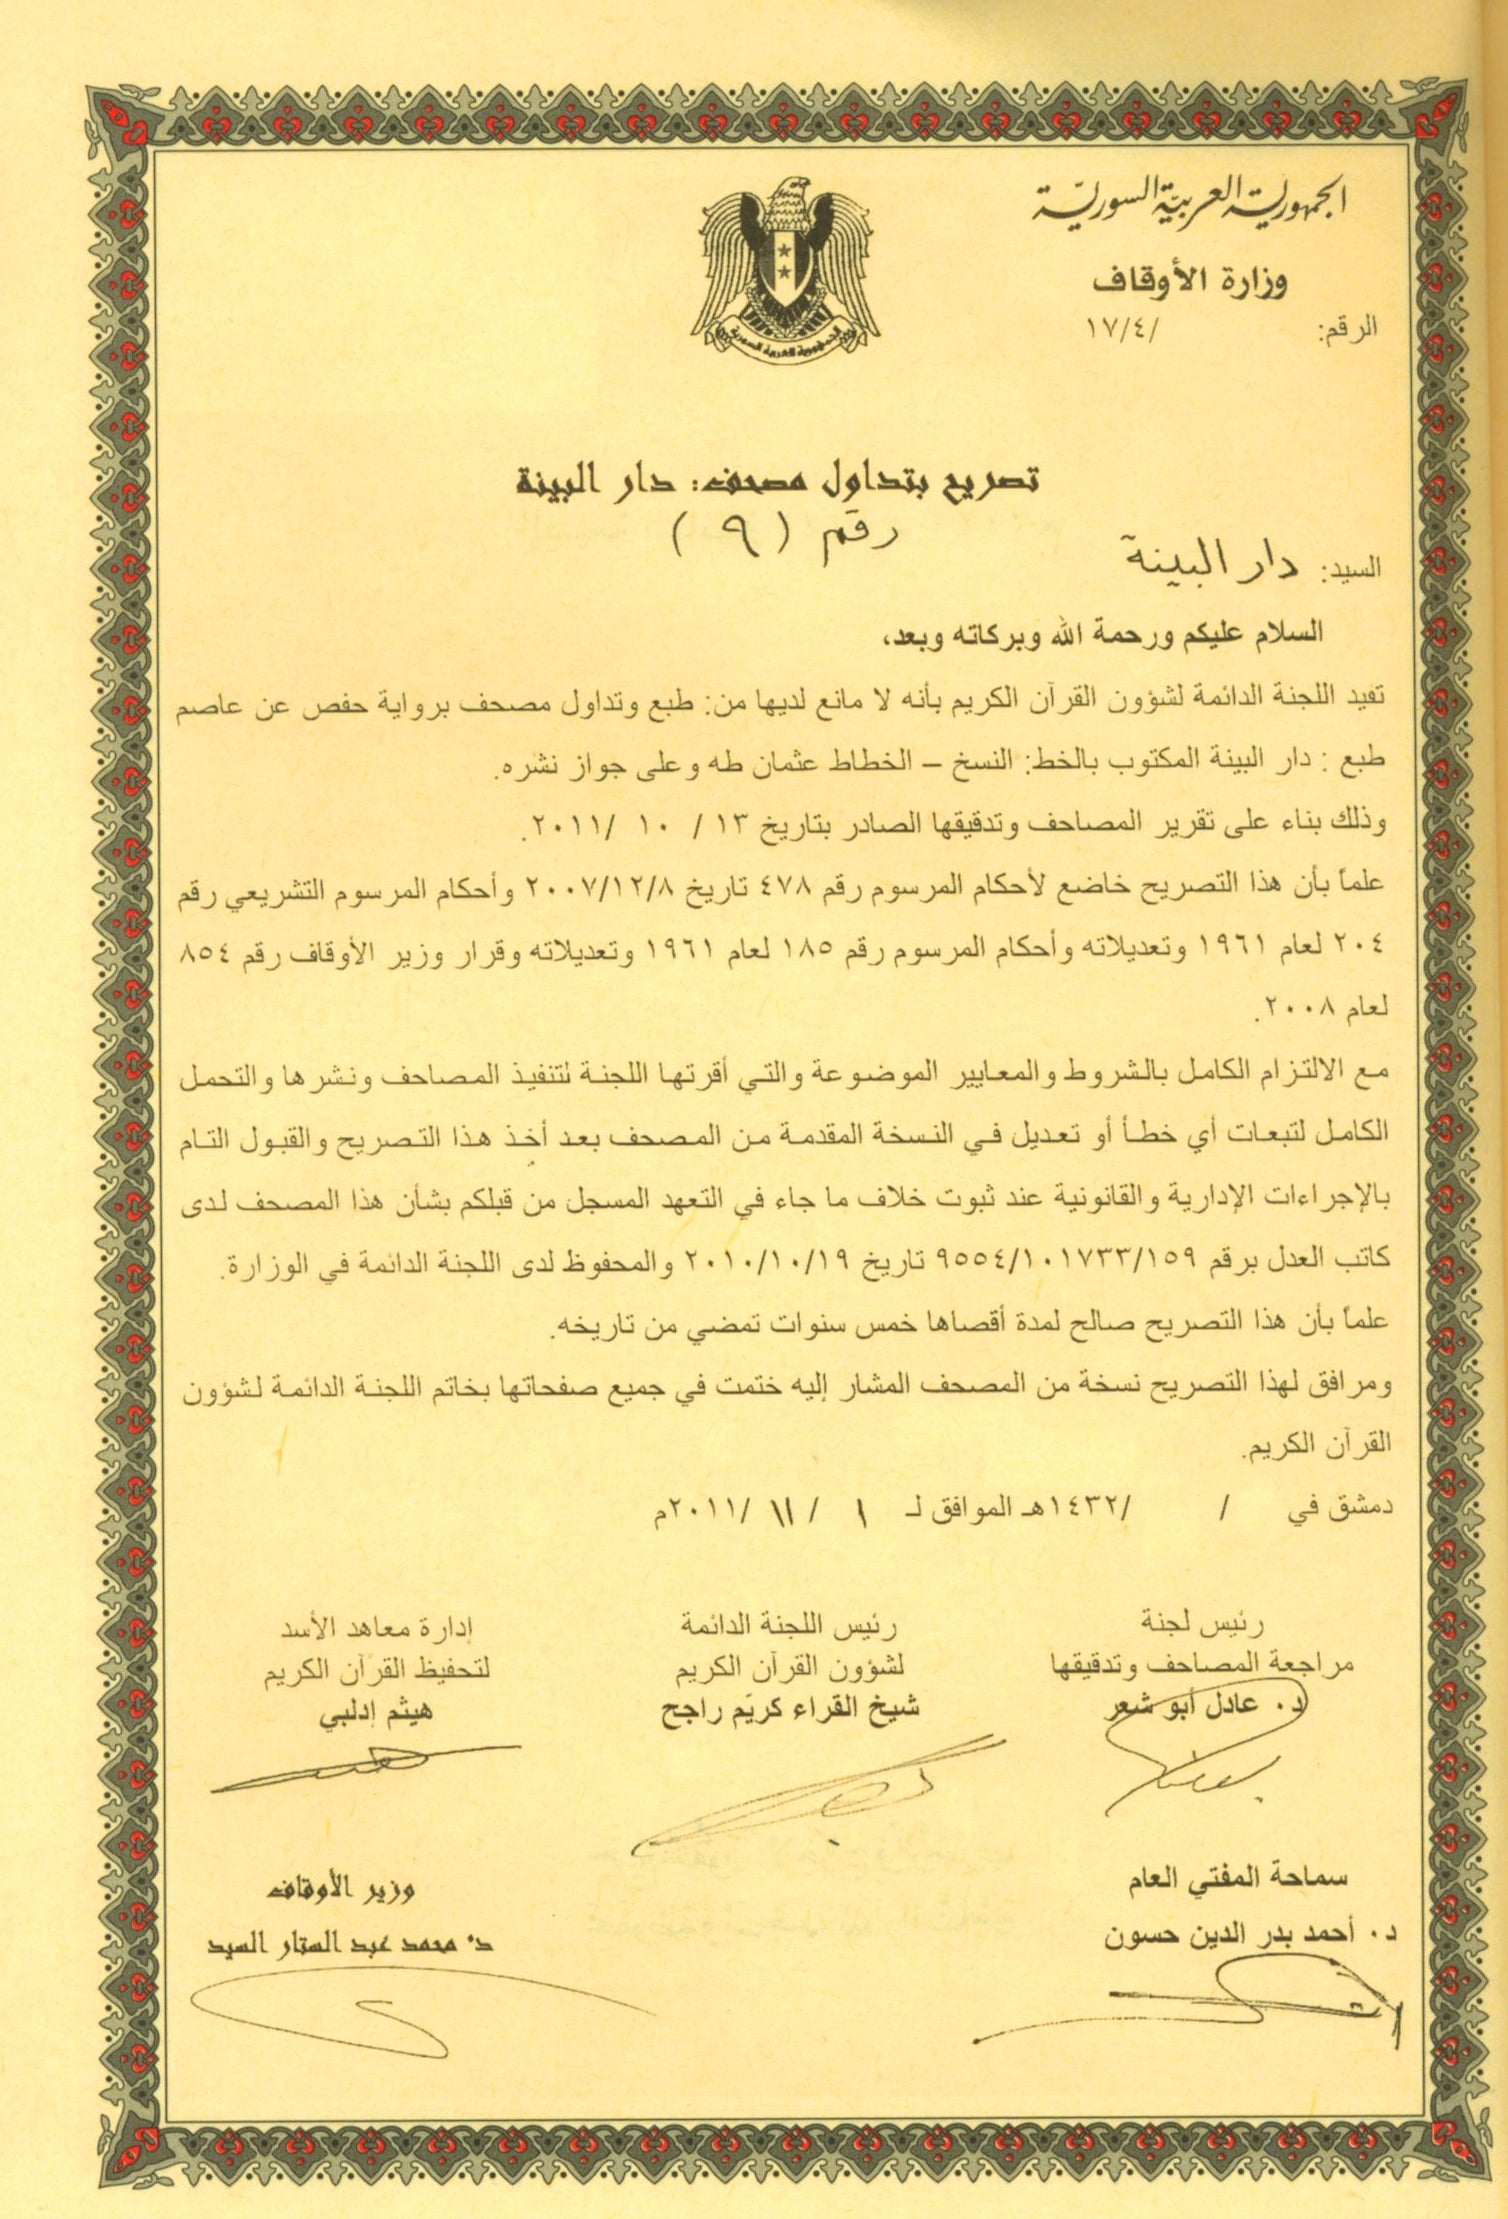 الجمهورية العربية السورية
وزارة الأوقاف
الرقم: /١٧/٤
الجمهورية العربية السورية
تصريح بتداول مصحف: دار البينة
رقم ( ٩ )
السيد: دار البينة
السلام عليكم ورحمة الله وبركاته وبعد،
تفيد اللجنة الدائمة لشؤون القرآن الكريم بأنه لا مانع لديها من: طبع وتداول مصحف برواية حفص عن عاصم
طبع : دار البينة المكتوب بالخط: النسخ – الخطاط عثمان طه وعلى جواز نشره.
وذلك بناء على تقرير المصاحف وتدقيقها الصادر بتاريخ ١٣ / ١٠ /٢٠١١.
علماً بأن هذا التصريح خاضع لأحكام المرسوم رقم ٤٧٨ تاريخ ٢٠٠٧/١٢/٨ وأحكام المرسوم التشريعي رقم
٢٠٤ لعام ١٩٦١ وتعديلاته وأحكام المرسوم رقم ١٨٥ لعام ١٩٦١ وتعديلاته وقرار وزير الأوقاف رقم ٨٥٤
لعام ٢٠٠٨.
مع الالتزام الكامل بالشروط والمعايير الموضوعة والتي أقرتها اللجنة لتنفيذ المصاحف ونشرها والتحمل
الكامل لتبعات أي خطأ أو تعديل في النسخة المقدمة من المصحف بعد أخذ هذا التصريح والقبول التام
بالإجراءات الإدارية والقانونية عند ثبوت خلاف ما جاء في التعهد المسجل من قبلكم بشأن هذا المصحف لدى
كاتب العدل برقم ٩٥٥٤/١٠١٧٣٣/١٥٩ تاريخ ٢٠١٠/١٠/١٩ والمحفوظ لدى اللجنة الدائمة في الوزارة.
علماً بأن هذا التصريح صالح لمدة أقصاها خمس سنوات تمضي من تاريخه.
ومرافق لهذا التصريح نسخة من المصحف المشار إليه ختمت في جميع صفحاتها بخاتم اللجنة الدائمة لشؤون
القرآن الكريم.
دمشق في / /١٤٣٢هـ الموافق لـ ١ / ١١ /٢٠١١م
رئيس لجنة
مراجعة المصاحف وتدقيقها
د. عادل أبو شعر
رئيس اللجنة الدائمة
لشؤون القرآن الكريم
شيخ القراء كريّم راجح
إدارة معاهد الأسد
لتحفيظ القرآن الكريم
هيثم إدلبي
سماحة المفتي العام
د. أحمد بدر الدين حسون
وزير الأوقاف
د. محمد عبد الستار السيد